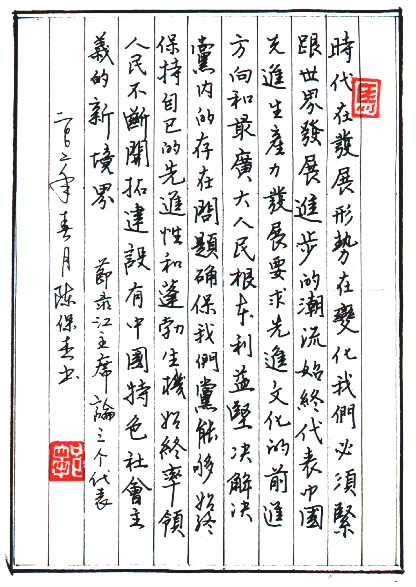 時代在發展形勢在變化我們必須緊
跟世界發展進步的潮流始終代表中國
先進生產力發展要求先進文化的前進
方向和最廣大人民根本利益堅决解决
黨内的存在問題确保我們黨能够始終
保持自己的先進性和蓬勃生機始終率領
人民不斷開拓建設有中國特色社會主
義的新境界 節录江主席論三个代表
二〇〇二年春月陈保